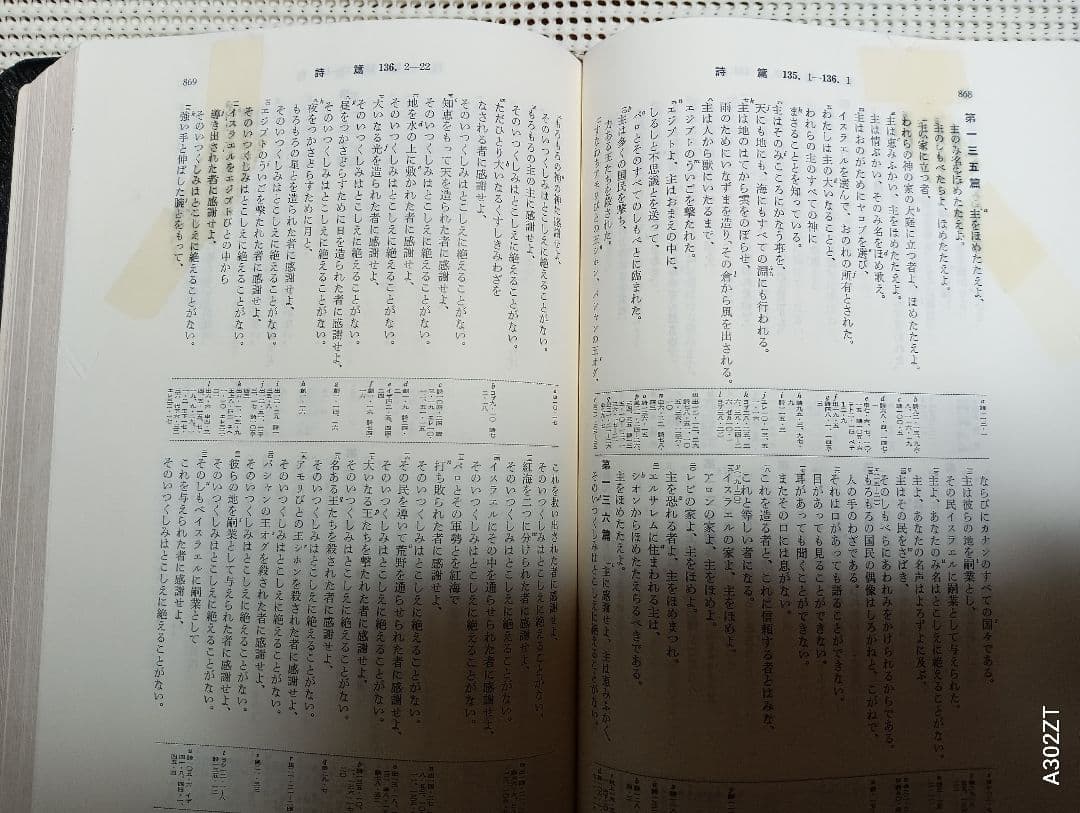 868
詩篇 135.1—136.1
第一三五篇
主をほめたたえよ、
主のみ名をほめたたえよ。
主のしもべたちよ、ほめたたえよ。
主の家に立つ者、
われらの神の家の大庭に立つ者よ、ほめたたえよ。
主は恵みふかい、主をほめたたえよ。
主は情ぶかい、そのみ名をほめ歌え。
主はおのがためにヤコブを選び、
イスラエルを選んで、おのれの所有とされた。
わたしは主の大いなることと、
われらの主のすべての神に
まさることとを知っている。
主はそのみこころにかなう事を、
天にも地にも、海にもすべての淵にも行われる。
主は地のはてから雲をのぼらせ、
雨のためにいなずまを造り、その倉から風を出される。
主は人から獣にいたるまで、
エジプトのういごを撃たれた。
エジプトよ、主はおまえの中に、
しるしと不思議とを送って、
パロとそのすべてのしもべとに臨まれた。
主は多くの国民を撃ち、
力ある王たちを殺された。
すなわちアモリびとの王シホン、バシャンの王オグ、
ならびにカナンのすべての国々である。
主は彼らの地を嗣業とし、
その民イスラエルに嗣業として与えられた。
主よ、あなたのみ名はとこしえに絶えることがない。
主よ、あなたの名声はよろずよに及ぶ。
主はその民をさばき、
そのしもべらにあわれみをかけられるからである。
もろもろの国民の偶像はしろがねと、こがねで、
人の手のわざである。
それは口があっても語ることができない。
目があっても見ることができない。
耳があっても聞くことができない。
またその口には息がない。
これを造る者と、これに信頼する者とはみな、
これと等しい者になる。
イスラエルの家よ、主をほめよ。
アロンの家よ、主をほめよ。
レビの家よ、主をほめよ。
主を恐れる者よ、主をほめまつれ。
エルサレムに住まわれる主は、
シオンからほめたたえらるべきである。
主をほめたたえよ。
第一三六篇
主に感謝せよ、主は恵みふかく、
そのいつくしみはとこしえに絶えることがない。
869
詩篇 136.2—22
もろもろの神の神に感謝せよ、
そのいつくしみはとこしえに絶えることがない。
もろもろの主の主に感謝せよ、
そのいつくしみはとこしえに絶えることがない。
ただひとり大いなるくすしきみわざを
なされる者に感謝せよ、
そのいつくしみはとこしえに絶えることがない。
知恵をもって天を造られた者に感謝せよ、
そのいつくしみはとこしえに絶えることがない。
地を水の上に敷かれた者に感謝せよ、
そのいつくしみはとこしえに絶えることがない。
大いなる光を造られた者に感謝せよ、
そのいつくしみはとこしえに絶えることがない。
昼をつかさどらすために日を造られた者に感謝せよ、
そのいつくしみはとこしえに絶えることがない。
夜をつかさどらすために月と、
もろもろの星とを造られた者に感謝せよ、
そのいつくしみはとこしえに絶えることがない。
エジプトのういごを撃たれた者に感謝せよ、
そのいつくしみはとこしえに絶えることがない。
イスラエルをエジプトびとの中から
導き出された者に感謝せよ、
そのいつくしみはとこしえに絶えることがない。
強い手と伸ばした腕とをもって、
これを救い出された者に感謝せよ、
そのいつくしみはとこしえに絶えることがない。
紅海を二つに分けられた者に感謝せよ、
そのいつくしみはとこしえに絶えることがない。
イスラエルにその中を通らせられた者に感謝せよ、
そのいつくしみはとこしえに絶えることがない。
パロとその軍勢とを紅海で
打ち敗られた者に感謝せよ、
そのいつくしみはとこしえに絶えることがない。
その民を導いて荒野を通らせられた者に感謝せよ、
そのいつくしみはとこしえに絶えることがない。
大いなる王たちを撃たれた者に感謝せよ、
そのいつくしみはとこしえに絶えることがない。
名ある王たちを殺された者に感謝せよ、
そのいつくしみはとこしえに絶えることがない。
アモリびとの王シホンを殺された者に感謝せよ、
そのいつくしみはとこしえに絶えることがない。
バシャンの王オグを殺された者に感謝せよ、
そのいつくしみはとこしえに絶えることがない。
彼らの地を嗣業として与えられた者に感謝せよ、
そのいつくしみはとこしえに絶えることがない。
そのしもべイスラエルに嗣業として
これを与えられた者に感謝せよ、
そのいつくしみはとこしえに絶えることがない。
A302ZT